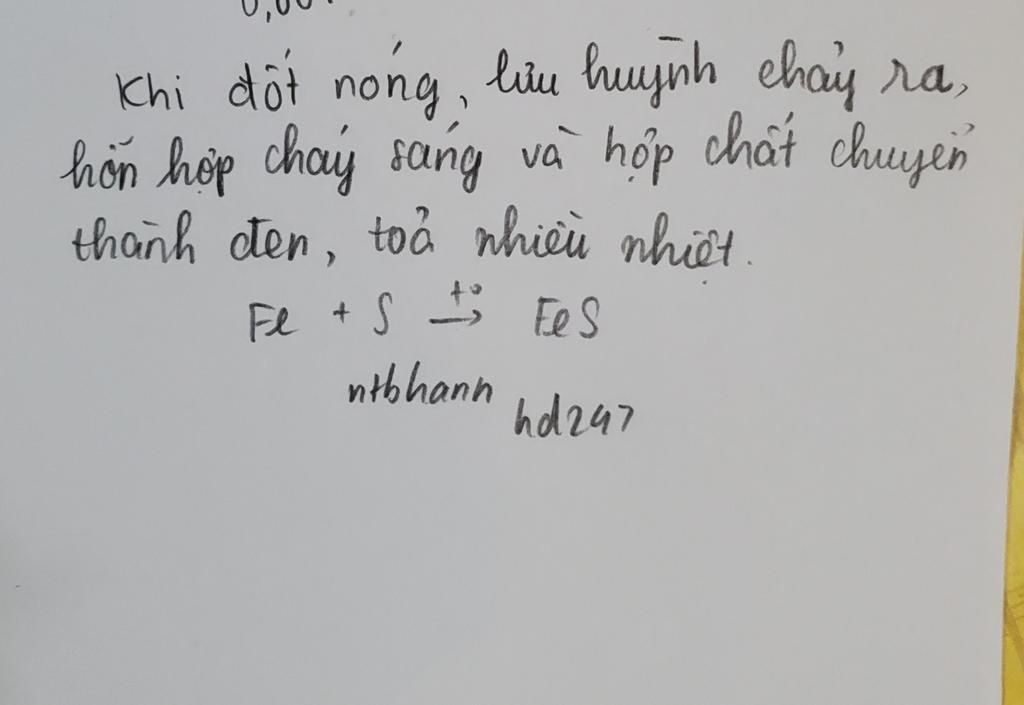 Khi đốt nóng, lưu huỳnh chảy ra,
hỗn hợp cháy sáng và hợp chất chuyển
thành đen, toả nhiều nhiệt.
Fe + S t° → FeS
ntbhann
hd247